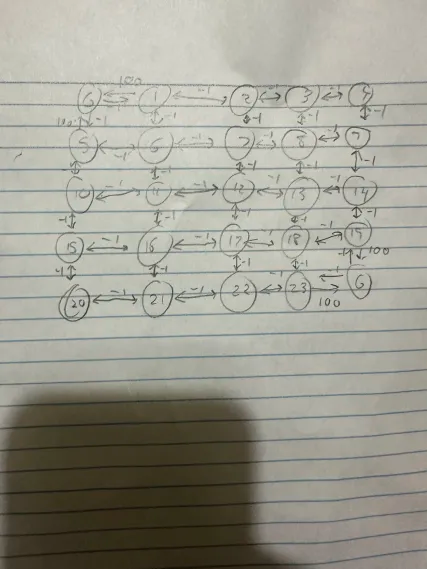 100
6 -1 1 -1 2 -1 3 -1 4
100 -1 -1 -1 -1 -1
5 -1 6 -1 7 -1 8 -1 9
-1 -1 -1 -1 -1
10 -1 11 -1 12 -1 13 -1 14
-1 -1 -1 -1 -1
15 -1 16 -1 17 -1 18 -1 19
-1 -1 -1 -1 -1 100
20 -1 21 -1 22 -1 23 -1 6
100